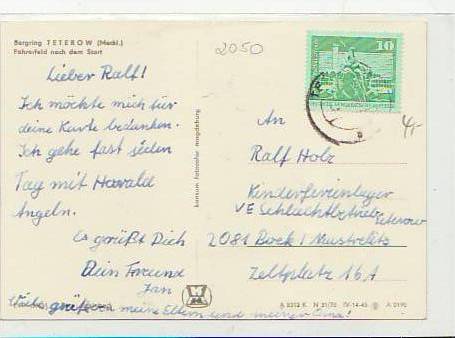 Bergring TETEROW (Meckl.)
Fahrerfeld nach dem Start
2050
10
Lieber Ralf!
Ich möchte mich für
deine Karte bedanken.
Ich gehe fast jeden
Tag mit Harald
Angeln.
Es grüßt Dich
Dein Freund
Jan
grüßen meine Eltern und meine Oma!
An
Ralf Holz
Kinderferienlager
VE Schlachtbetrieb Teterow
2081 Boek / Mustrelitz
Zeltplatz 16A
4,-
A 8312 K N 21/73 IV-14-45 A 0190